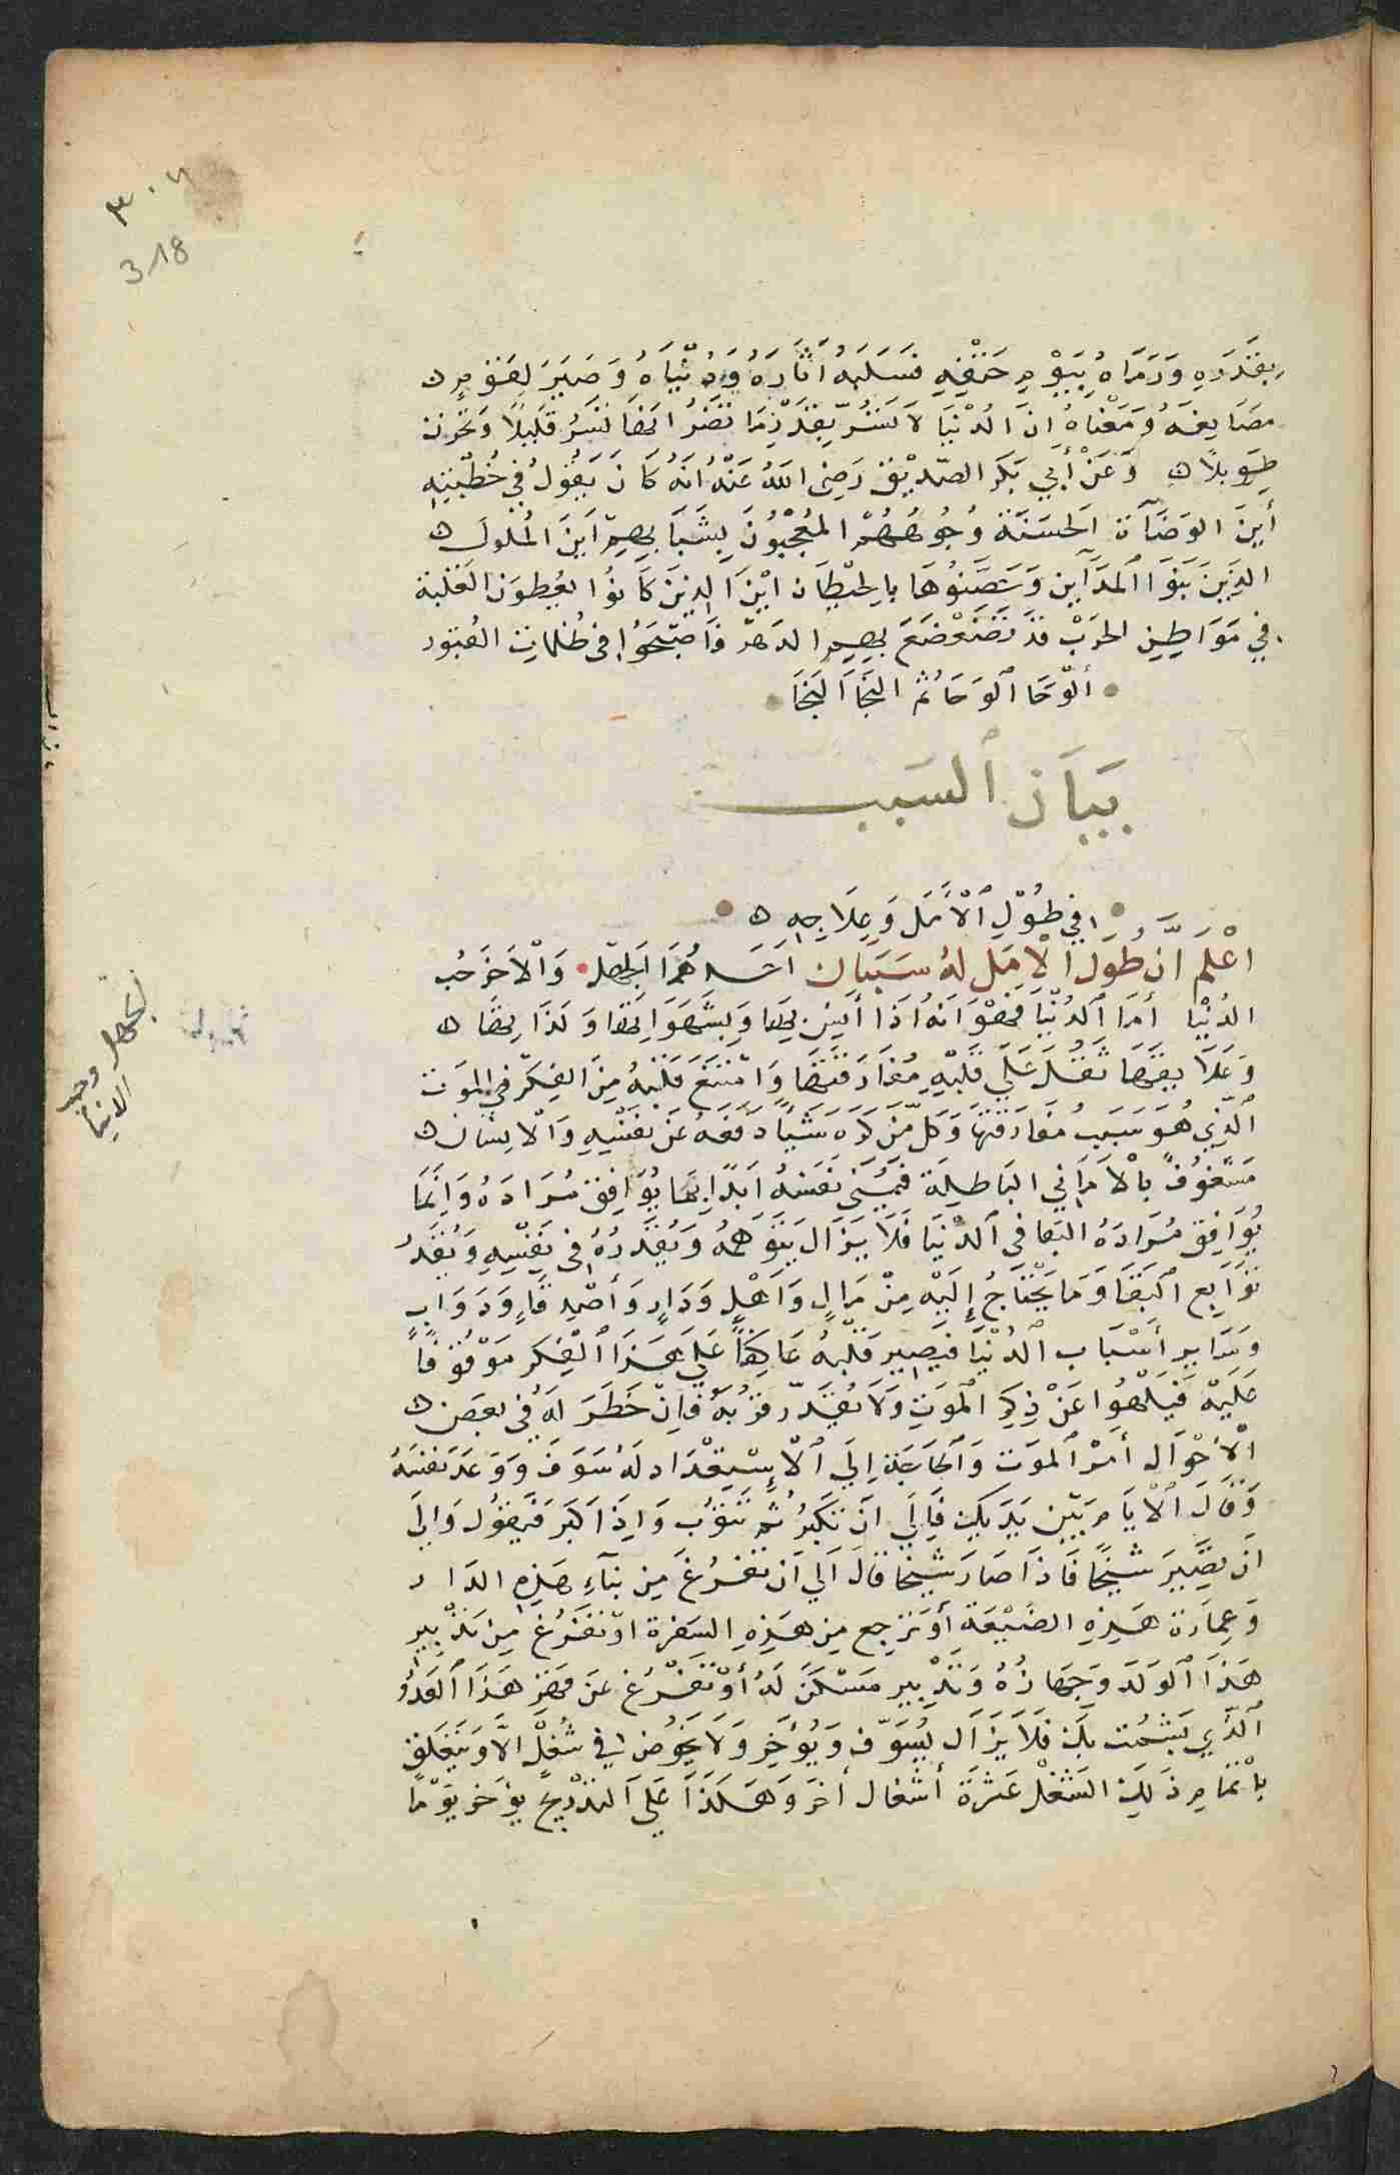 ٣٠٦
318
بِقَدَرِهِ وَرَمَاهُ بِيَوْمِ حَتْفِهِ فَسَلَبَهُ اٰثَارَهُ وَدُنْيَاهُ وَصَيَّرَ لِقَوْمٍ
مَصَانِعَهُ وَمَغْنَاهُ اِنَّ الدُّنْيَا لَا تَسُرُّ بِقَدْرِ مَا تَضُرُّ اِنَّهَا تَسُرُّ قَلِيلًا وَتُحْزِنُ
طَوِيلًا وَعَنْ أَبِي بَكْرٍ الصِّدِّيقِ رَضِيَ اللَّهُ عَنْهُ أَنَّهُ كَانَ يَقُولُ فِي خُطْبَتِهِ
أَيْنَ الوَضَآءَةُ الحَسَنَةُ وُجُوهُهُمْ المُعْجَبُونَ بِشَبَابِهِمْ اَيْنَ المُلُوكُ
الَّذِينَ بَنَوْا المَدَآئِنَ وَحَصَّنُوهَا بِالحِيطَانِ اَيْنَ الَّذِينَ كَانُوا يُعْطَوْنَ الغَلَبَةَ
فِي مَوَاطِنِ الحَرْبِ قَدْ تَضَعْضَعَ بِهِمِ الدَّهْرُ فَاَصْبَحُوا فِي ظُلُمَاتِ القُبُورِ
أَلْوَحَا الْوَحَا ثُمَّ النَّجَا النَّجَا
بَيَانُ السَّبَبِ
فِي طُوْلِ الْأَمَلِ وَعِلَاجِهِ
اعْلَمْ اَنَّ طُولَ الْاَمَلِ لَهُ سَبَبَانِ اَحَدُهُمَا الجَهْلُ وَالْاٰخَرُ حُبُّ
الدُّنْيَا أَمَّا الدُّنْيَا فَهُوَ اَنَّهُ اِذَا أَنِسَ بِهَا وَبِشَهَوَاتِهَا وَلَذَّاتِهَا
وَعَلَائِقِهَا ثَقُلَ عَلَى قَلْبِهِ مُفَارَقَتُهَا وَامْتَنَعَ قَلْبُهُ مِنَ الفِكْرِ فِي المَوْتِ
الَّذِي هُوَ سَبَبُ مُفَارَقَتِهَا وَكُلُّ مَنْ كَرِهَ شَيْأً دَفَعَهُ عَنْ نَفْسِهِ وَالْاِنْسَانُ
مَشْغُوفٌ بِالْاَمَانِي البَاطِلَةِ فَيُمَنِّي نَفْسَهُ اَبَدًا بِمَا يُوَافِقُ مُرَادَهُ وَاِنَّمَا
يُوَافِقُ مُرَادَهُ البَقَا فِي الدُّنْيَا فَلَا يَزَالُ يَتَوَهَّمُهُ وَيُقَدِّرُهُ فِي نَفْسِهِ وَيُقَدِّرُ
تَوَابِعَ الْبَقَا وَمَا يَحْتَاجُ إِلَيْهِ مِنْ مَالٍ وَاَهْلٍ وَدَارٍ وَأَصْدِقَاءٍ وَدَوَابٍّ
وَسَايِرِ أَسْبَابِ الدُّنْيَا فَيَصِيرُ قَلْبُهُ عَاكِفًا عَلَى هَذَا الْفِكْرِ مَوْقُوفًا
عَلَيْهِ فَيَلْهُوا عَنْ ذِكْرِ الْمَوْتِ وَلَا يُقَدِّرُ قُرْبَهُ فَاِنْ خَطَرَ لَهُ فِي بَعْضِ
الْأَحْوَالِ أَمْرُ الْمَوْتِ وَالحَاجَةُ اِلَى الْاِسْتِعْدَادِ لَهُ سَوَّفَ وَوَعَدَ نَفْسَهُ
وَقَالَ الْاَيَّامُ بَيْنَ يَدَيْكَ فَاِلَى اَنْ تَكْبُرَ ثُمَّ تَتُوبُ وَاِذَا كَبُرَ فَيَقُولُ وَاِلَى
اَنْ يَصِيرَ شَيْخًا فَاِذَا صَارَ شَيْخًا قَالَ اِلَى اَنْ تَفْرُغَ مِنْ بِنَآءِ هَذِهِ الدَّارِ
وَعِمَارَةِ هَذِهِ الضَّيْعَةِ أَوْ تَرْجِعَ مِنْ هَذِهِ السَّفْرَةِ اَوْ تَفْرُغَ مِنْ تَدْبِيرِ
هَذَا الْوَلَدِ وَجَهَازِهُ وَتَدْبِيرِ مَسْكَنٍ لَهُ أَوْ تَفْرُغَ مِنْ قَهْرِ هَذَا الْعَدُوِّ
الَّذِي يَشْمَتُ بِكَ فَلَا يَزَالُ يُسَوِّفُ وَيُؤَخِّرُ وَلَا يَخُوضُ فِي شُغْلٍ اِلَّا وَيَتَعَلَّقُ
بِاتْمَامِ ذَلِكَ الشُّغْلِ عَشْرَةُ أَشْغَالٍ أُخَرَ وَهَكَذَا عَلَى التَّدْرِيجِ يُؤَخِّرُ يَوْمًا
الجهل وحب
الدنيا